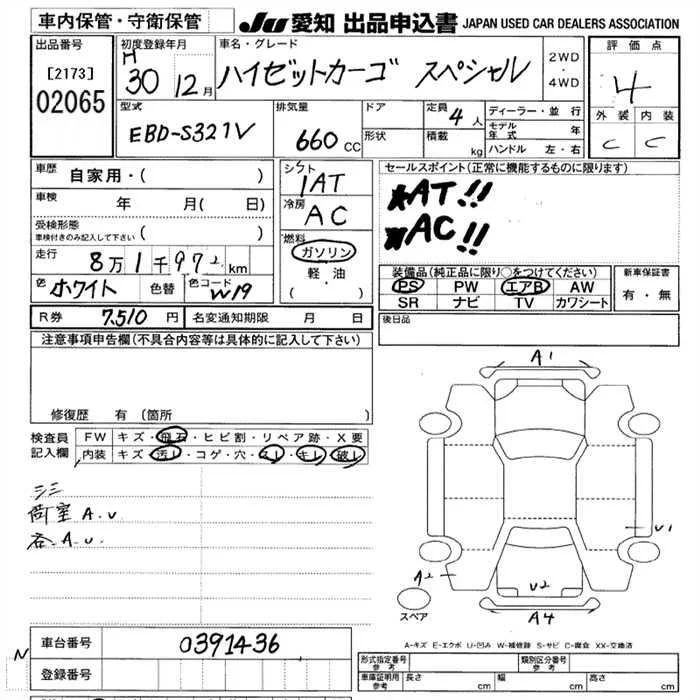 車内保管・守衛保管
JU 愛知 出品申込書 JAPAN USED CAR DEALERS ASSOCIATION
出品番号
[2173]
02065
初度登録年月
H
30 12月
車名・グレード
ハイゼットカーゴ スペシャル
2WD
・
4WD
評価点
4
外装 内装
C C
型式
EBD-S321V
排気量
660 CC
ドア
形状
定員 4人
積載 kg
ディーラー・並行
モデル年式 年
ハンドル 左・右
車歴 自家用・( )
車検 年 月( 日)
受検形態
車検付きのみ記入して下さい ( )
走行 8万1千972km
色 ホワイト 色替 色コード W19
シフト
1AT
冷房
AC
燃料
ガソリン
軽・油
( ・ )
セールスポイント(正常に機能するものに限ります)
AT!!
AC!!
装備品(純正品に限り○をつけてください)
PS PW エアB AW
SR ナビ TV カワシート
新車保証書
有・無
R券 7,510円 名変通知期限 月 日
後日品
注意事項申告欄(不具合内容等は具体的に記入して下さい)
修復歴 有(箇所
検査員
記入欄
FW キズ・飛石・ヒビ割・リペア跡・X要
内装 キズ・汚レ・コゲ・穴・スレ・キレ・破レ
シミ
荷室 A.U
各 A.U
A1
U1
A2
U2
A4
スペア
A-キズ E-エクボ U-凹み W-補修跡 S-サビ C-腐食 XX-交換済
N
車台番号 0391436
登録番号
形式指定番号
参考
類別区分番号
参考
車庫証明用
参考
長さ cm 幅 cm 高さ cm